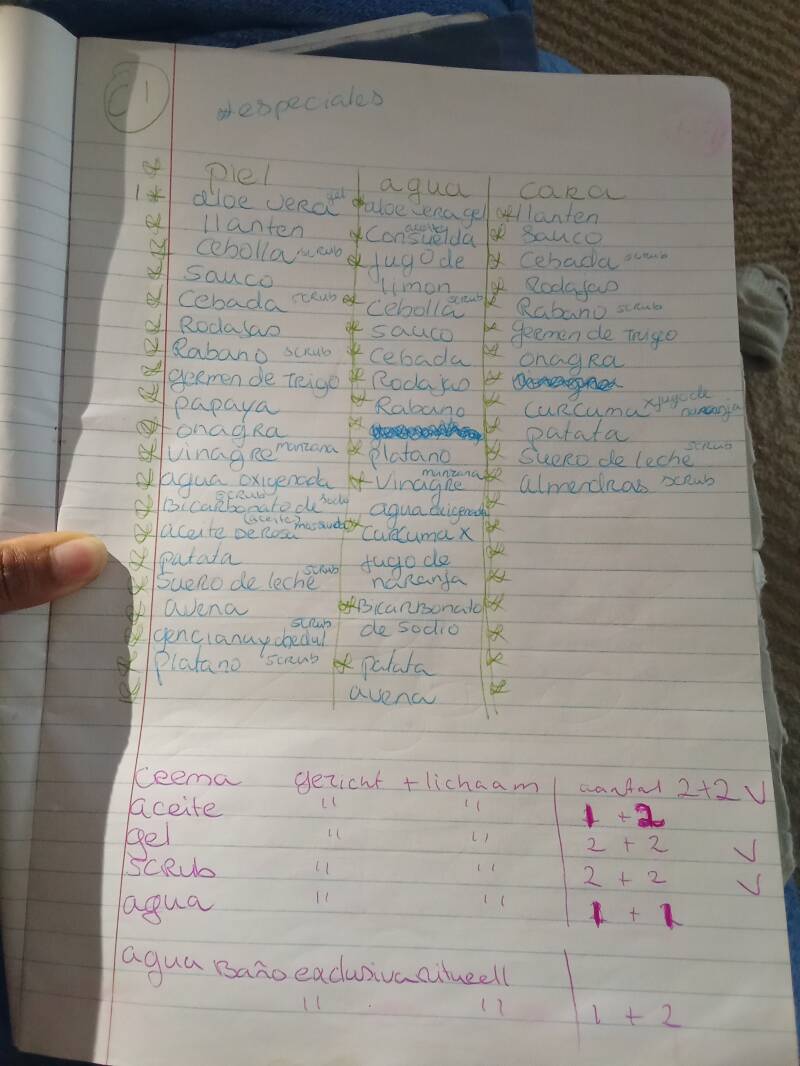 *especiales
piel agua cara
aloe vera gel *aloe vera gel *llanten
llanten *Consuelda aceite * Sauco
Cebolla scrub *jugo de * Cebada scrub
Sauco limon * Rodajas
Cebada scrub *Cebolla scrub * Rabano scrub
Rodajas *Sauco * germen de Trigo
Rabano scrub *Cebada * onagra
germen de Trigo *Rodajas *
papaya *Rabano * Curcuma x jugo de naranja
onagra * patata
vinagre manzana *platano * Suero de leche scrub
agua oxigenada *vinagre manzana * almendras scrub
Bicarbonato de scrub agua oxigenada *
aceite De Rosa (aceite) *Curcuma x *
patata jugo de *
Suero de leche scrub naranja *
avena *Bicarbonato *
genciana y abedul scrub de sodio *
Platano scrub * patata *
avena *
Ceema gezicht + lichaam aantal 2+2 ✓
aceite " " 1 + 2
gel " " 2 + 2 ✓
SCRUB " " 2 + 2 ✓
agua " " 1 + 1
agua Baño exclusiva
" " 1 + 2